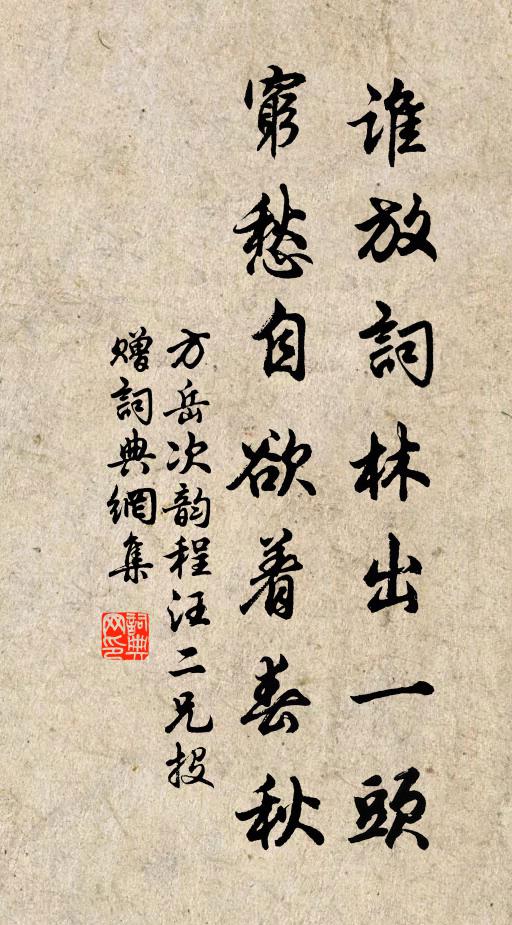 誰放詞林出一頭
窮愁自欲着春秋
方岳次韵程汪二兄投
贈詞典網集
詞典网印